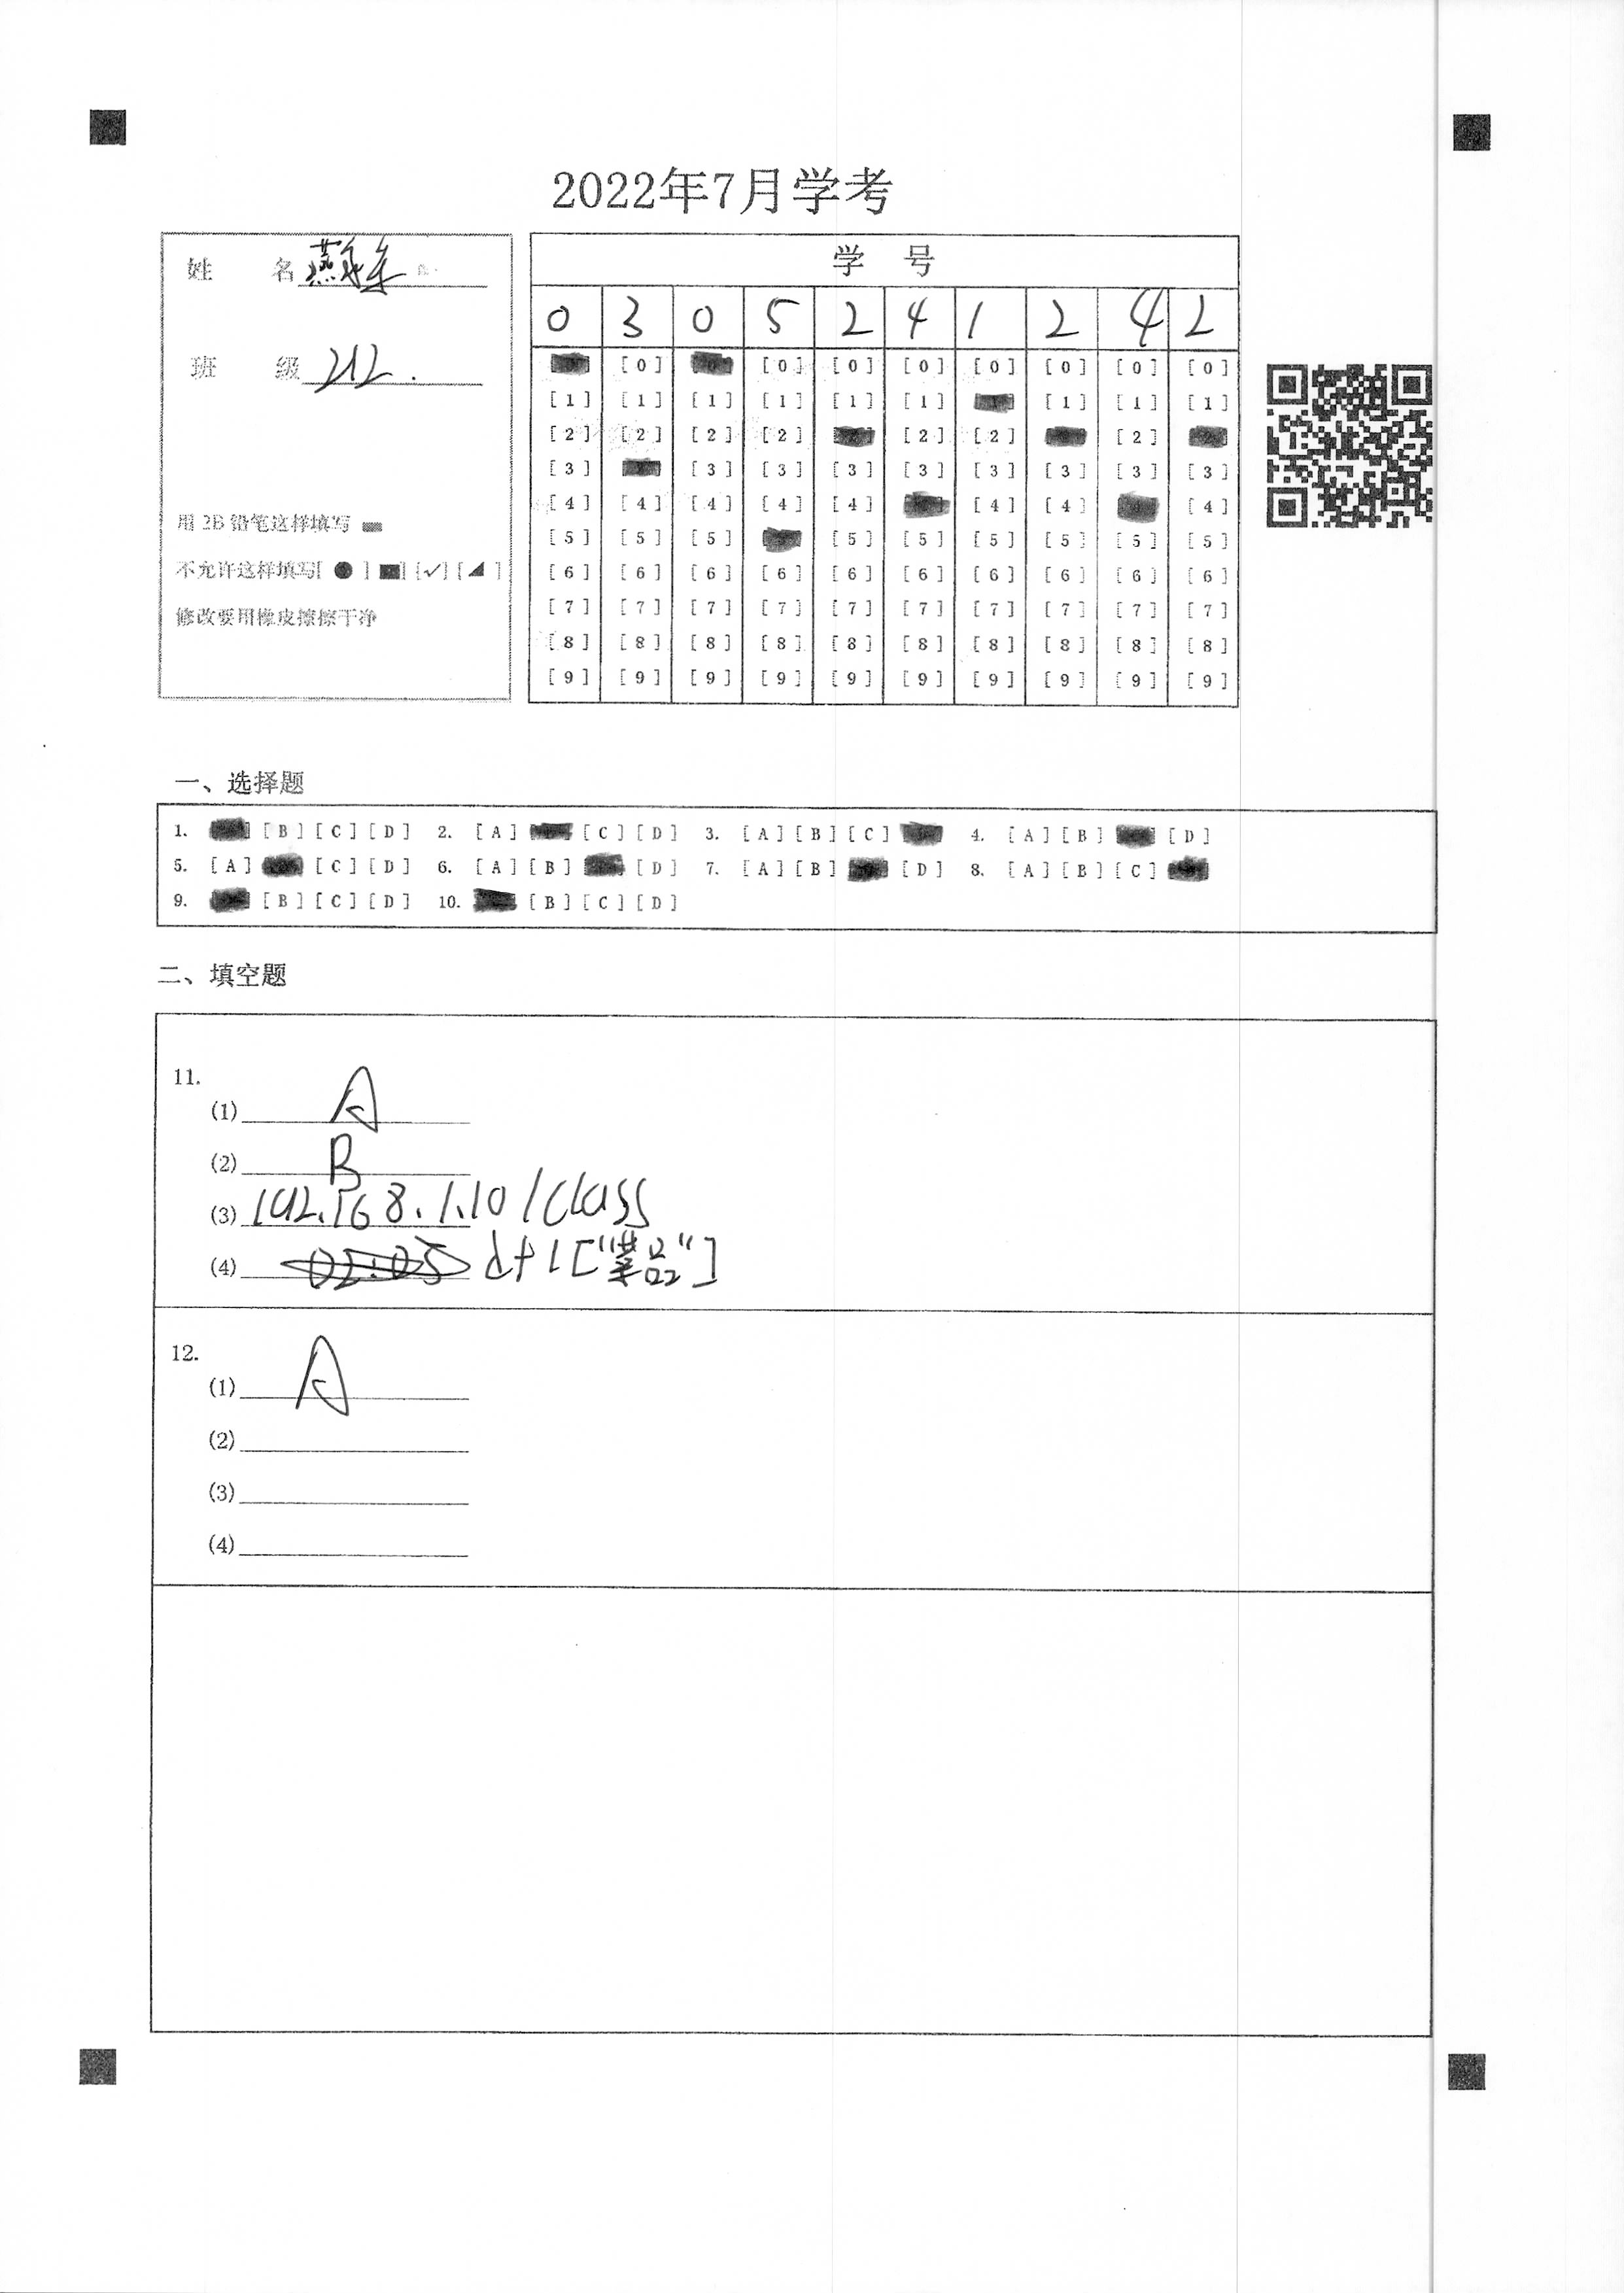 2022年7月学考
姓 名
班 级 212.
用 2B 铅笔这样填写
不允许这样填写[ ● ] [■] [✓] [◢ ]
修改要用橡皮擦擦干净
学 号
0 3 0 5 2 4 1 2 4 2
[0] [0] [0] [0] [0] [0] [0] [0]
[1] [1] [1] [1] [1] [1] [1] [1] [1]
[2] [2] [2] [2] [2] [2] [2]
[3] [3] [3] [3] [3] [3] [3] [3] [3]
[4] [4] [4] [4] [4] [4] [4] [4]
[5] [5] [5] [5] [5] [5] [5] [5] [5]
[6] [6] [6] [6] [6] [6] [6] [6] [6] [6]
[7] [7] [7] [7] [7] [7] [7] [7] [7] [7]
[8] [8] [8] [8] [8] [8] [8] [8] [8] [8]
[9] [9] [9] [9] [9] [9] [9] [9] [9] [9]
一、选择题
1. [B] [C] [D] 2. [A] [C] [D] 3. [A] [B] [C] 4. [A] [B] [D]
5. [A] [C] [D] 6. [A] [B] [D] 7. [A] [B] [D] 8. [A] [B] [C]
9. [B] [C] [D] 10. [B] [C] [D]
二、填空题
11.
(1) A
(2) B
(3) 192.168.1.10/class
(4) 02:05 df1["菜品"]
12.
(1) A
(2)
(3)
(4)